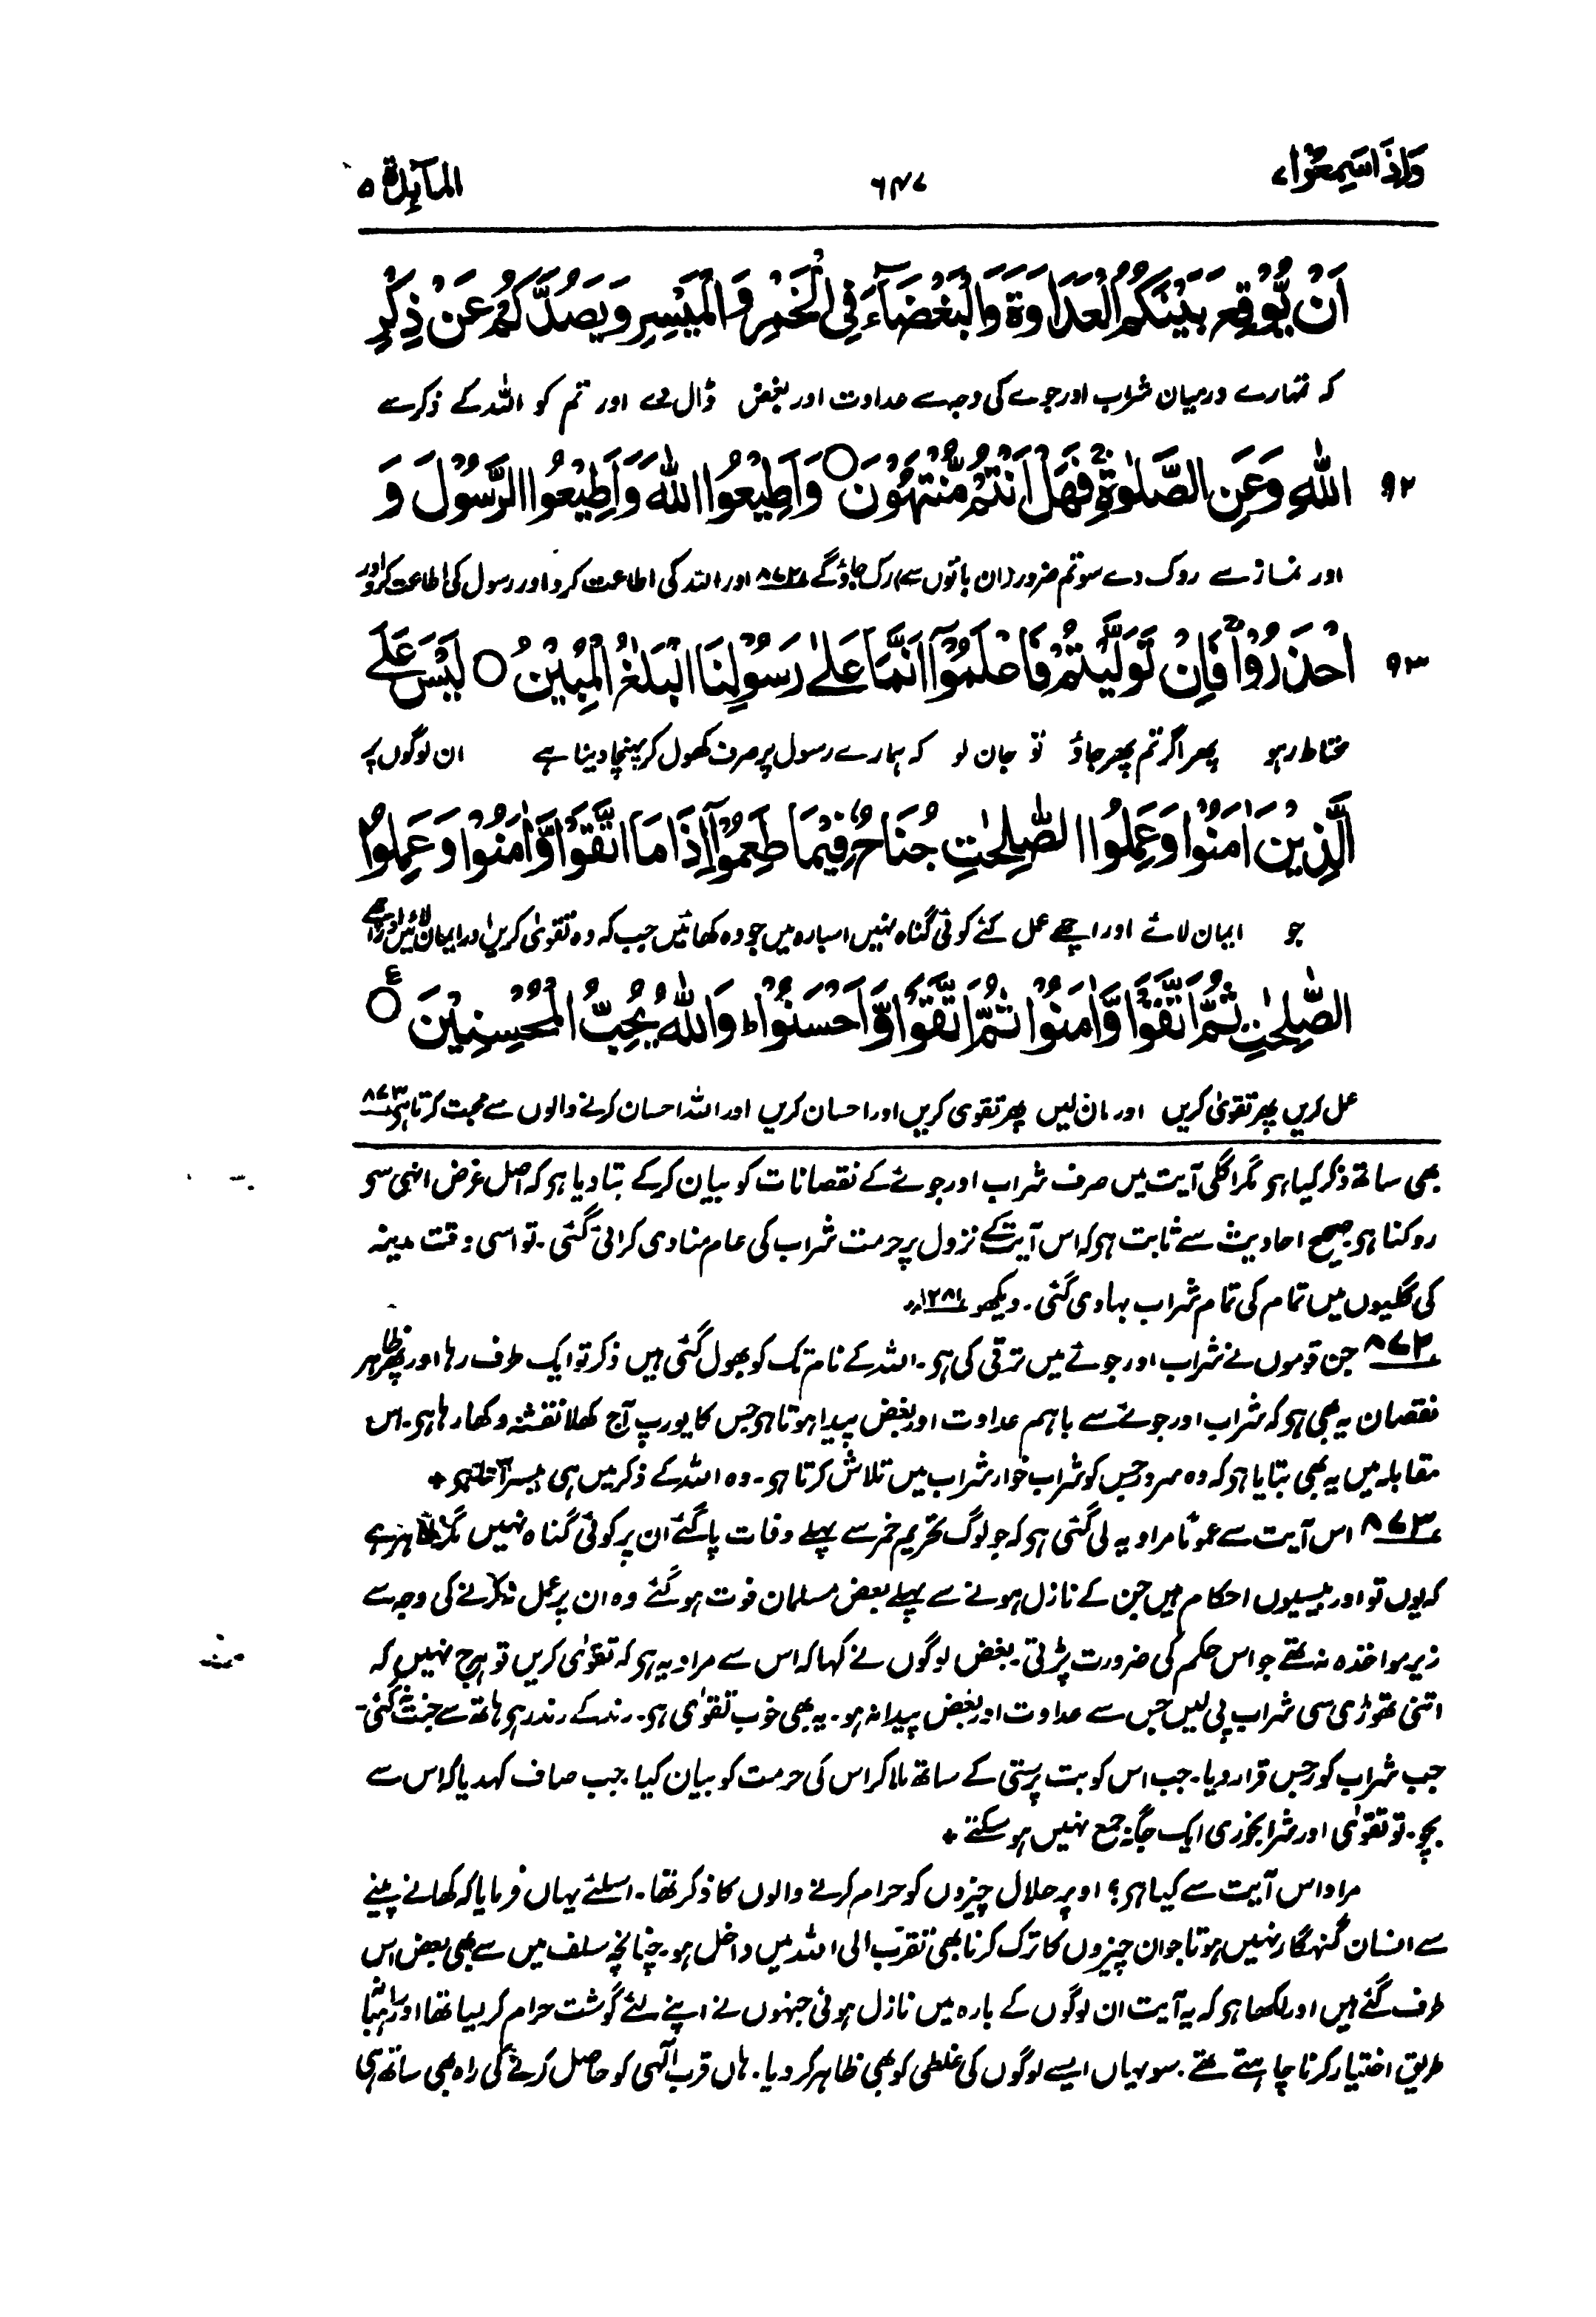 وَاِذَا سَمِعُوْا ۷
۶۴۷
المآئدة ۵
اَنْ يُّوْقِعَ بَيْنَكُمُ الْعَدَاوَةَ وَالْبَغْضَآءَ فِى الْخَمْرِ وَالْمَيْسِرِ وَيَصُدَّكُمْ عَنْ ذِكْرِ
کہ تمہارے درمیان شراب اور جوے کی وجہ سے عداوت اور بغض ڈال دے اور تم کو اللہ کے ذکر سے
۹۲ اللّٰهِ وَعَنِ الصَّلٰوةِ ۚ فَهَلْ اَنْتُمْ مُّنْتَهُوْنَ ○ وَاَطِيْعُوا اللّٰهَ وَاَطِيْعُوا الرَّسُوْلَ وَ
اور نماز سے روک دے سو تم ضرور (ان باتوں سے) رک جاؤ گے ۸۷۲ اور اللہ کی اطاعت کرو اور رسول کی اطاعت کرو اور
۹۳ احْذَرُوْا ۚ فَاِنْ تَوَلَّيْتُمْ فَاعْلَمُوْٓا اَنَّمَا عَلٰى رَسُوْلِنَا الْبَلٰغُ الْمُبِيْنُ ○ لَيْسَ عَلَى
محتاط رہو پھر اگر تم پھر جاؤ تو جان لو کہ ہمارے رسول پر صرف کھول کر پہنچا دینا ہے ان لوگوں پر
الَّذِيْنَ اٰمَنُوْا وَعَمِلُوا الصّٰلِحٰتِ جُنَاحٌ فِيْمَا طَعِمُوْٓا اِذَا مَا اتَّقَوْا وَّاٰمَنُوْا وَعَمِلُوا
جو ایمان لائے اور اچھے عمل کئے کوئی گناہ نہیں اس بارہ میں جو وہ کھائیں جب کہ وہ تقویٰ کریں اور ایمان لائیں اور اچھے
الصّٰلِحٰتِ ثُمَّ اتَّقَوْا وَّاٰمَنُوْا ثُمَّ اتَّقَوْا وَّاَحْسَنُوْا ؕ وَاللّٰهُ يُحِبُّ الْمُحْسِنِيْنَ ○ ع
عمل کریں پھر تقویٰ کریں اور مان لیں پھر تقوی کریں اور احسان کریں اور اللہ احسان کرنے والوں سے محبت کرتا ہی ۸۷۳
بھی ساتھ ذکر کیا ہی مگر اگلی آیت میں صرف شراب اور جوئے کے نقصانات کو بیان کرکے بتا دیا ہی کہ اصل غرض انہی سی
روکنا ہی صحیح احادیث سے ثابت ہی کہ اس آیت کے نزول پر حرمت شراب کی عام منادی کرائی گئی۔ تو اسی وقت مدینہ
کی گلیوں میں تمام کی تمام شراب بہا دی گئی۔ دیکھو ۲۸۱
۸۷۲ جن قوموں نے شراب اور جوئے میں ترقی کی ہی۔ اللہ کے نام تک کو بھول گئی ہیں ذکر تو ایک طرف رہا اور پھر ظاہر
نقصان یہ بھی ہی کہ شراب اور جوئے سے باہم عداوت اور بغض پیدا ہوتا ہی جس کا یورپ آج کھلا نقشہ دکھا رہا ہی۔ اس
مقابلہ میں یہ بھی بتایا ہی کہ وہ سرور جس کو شراب خوار شراب میں تلاش کرتا ہی۔ وہ اللہ کے ذکر میں ہی میسر آتا ہی ٭
۸۷۳ اس آیت سے عموماً مراد یہ لی گئی ہی کہ جو لوگ تحریم خمر سے پہلے وفات پاگئے ان پر کوئی گناہ نہیں مگر ظاہر ہے
کہ یوں تو اور بیسیوں احکام ہیں جن کے نازل ہونے سے پہلے بعض مسلمان فوت ہوگئے وہ ان پر عمل نہ کرنے کی وجہ سے
زیر مواخذہ نہ تھے جو اس حکم کی ضرورت پڑتی۔ بعض لوگوں نے کہا کہ اس سے مراد یہ ہی کہ تقوٰی کریں تو ہرج نہیں کہ
اتنی تھوڑی سی شراب پی لیں جس سے عداوت اور بغض پیدا نہ ہو۔ یہ بھی خوب تقوٰی ہی۔ رند کے رند رہی ہاتھ سے جنت نہ گئی۔
جب شراب کو رجس قرار دیا۔ جب اس کو بت پرستی کے ساتھ ملا کر اس کی حرمت کو بیان کیا۔ جب صاف کہدیا کہ اس سے
بچو۔ تو تقوٰی اور شرابخوری ایک جگہ جمع نہیں ہوسکتے ٭
مراد اس آیت سے کیا ہی؟ اوپر حلال چیزوں کو حرام کرنے والوں کا ذکر تھا۔ اسلئے یہاں فرمایا کہ کھانے پینے
سے انسان گنہگار نہیں ہوتا جو ان چیزوں کا ترک کرنا بھی تقرّب الی اللہ میں داخل ہو۔ چنانچہ سلف میں سے بھی بعض اس
طرف گئے ہیں اور لکھا ہی کہ یہ آیت ان لوگوں کے بارہ میں نازل ہوئی جنہوں نے اپنے لئے گوشت حرام کر لیا تھا اور راہبانہ
طریق اختیار کرنا چاہتے تھے۔ سو یہاں ایسے لوگوں کی غلطی کو بھی ظاہر کر دیا۔ ہاں قرب الٰہی کو حاصل کرنے کی راہ بھی ساتھ ہی